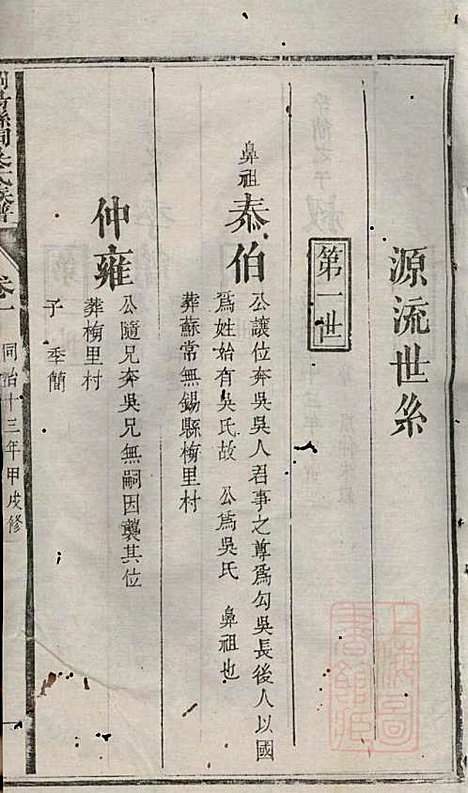 源流世系
第一世
鼻祖 泰伯
公讓位奔吳吳人君事之尊為勾吳長後人以國
為姓始有吳氏故 公為吳氏 鼻祖也
葬蘇常無錫縣梅里村
仲雍
公隨兄奔吳兄無嗣因襲其位
葬梅里村
子 季簡
卷一
同治十三年甲戌修